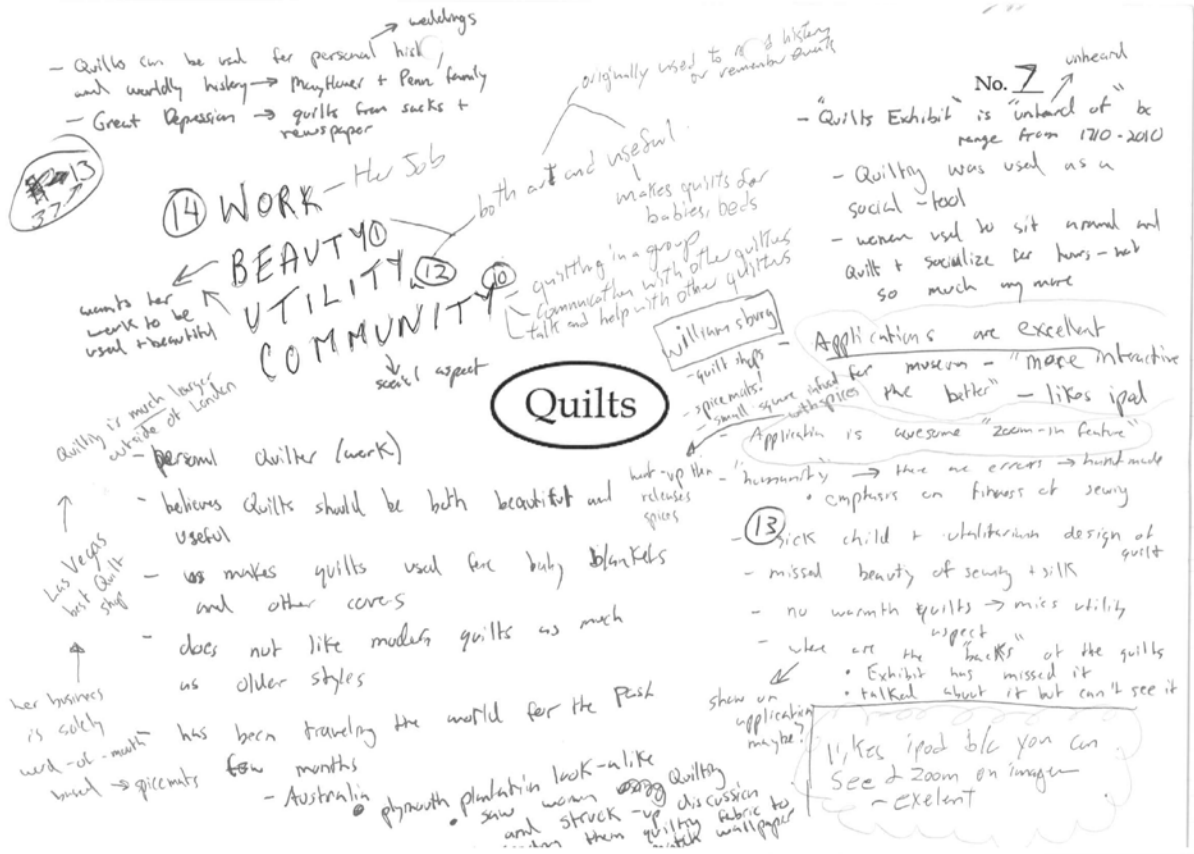 weddings
- Quilts can be used for personal hist
and worldly history → Mayflower + Penn family
- Great Depression → quilts from sacks +
newspaper
13
37
originally used to history
or remember events
unheard
No. 7
- "Quilts Exhibit" is "unheard of" bc
range from 1710-2010
- Quiltry was used as a
social-tool
- women used to sit around and
quilt + socialize for hours - not
so much any more
14 WORK - Her Job
BEAUTY
UTILITY 12
COMMUNITY 10
both art and useful
makes quilts for
babies, beds
wants her
work to be
used + beautiful
- quilting in a group
communication with other quilters
talk and help with other quilters
social aspect
Williamsburg
- quilt shops
- spicemats!
- small square infused
with spices
heat-up then
releases
spices
Quilts
- Applications are excellent
for museum - "more interactive
the better" - likes ipad
- Application is awesome "zoom-in feature"
- "humanity" → there are errors → hand made
• emphasis on fitness of sewing
- 13 sick child + utalitarium design of
quilt
- missed beauty of sewing + silk
- no warmth quilts → miss utility
aspect
- where are the "backs" of the quilts
• Exhibit has missed it
• talked about it but can't see it
show on
application
maybe?
likes ipod b/c you can
see & zoom on images
- exelent
Quilting is much larger
outside of London
Las Vegas
best Quilt
shop
her business
is solely
word-of-mouth
based → spicemats
- personal Quilter (work)
- believes Quilts should be both beautiful and
useful
- makes quilts used for baby blankets
and other covers
- does not like modern quilts as much
as older styles
- has been traveling the world for the past
few months
- Australia
• plymouth plantation look-alike
• saw women Quilting
and struck-up discussion
them quilting fabric to
wallpaper